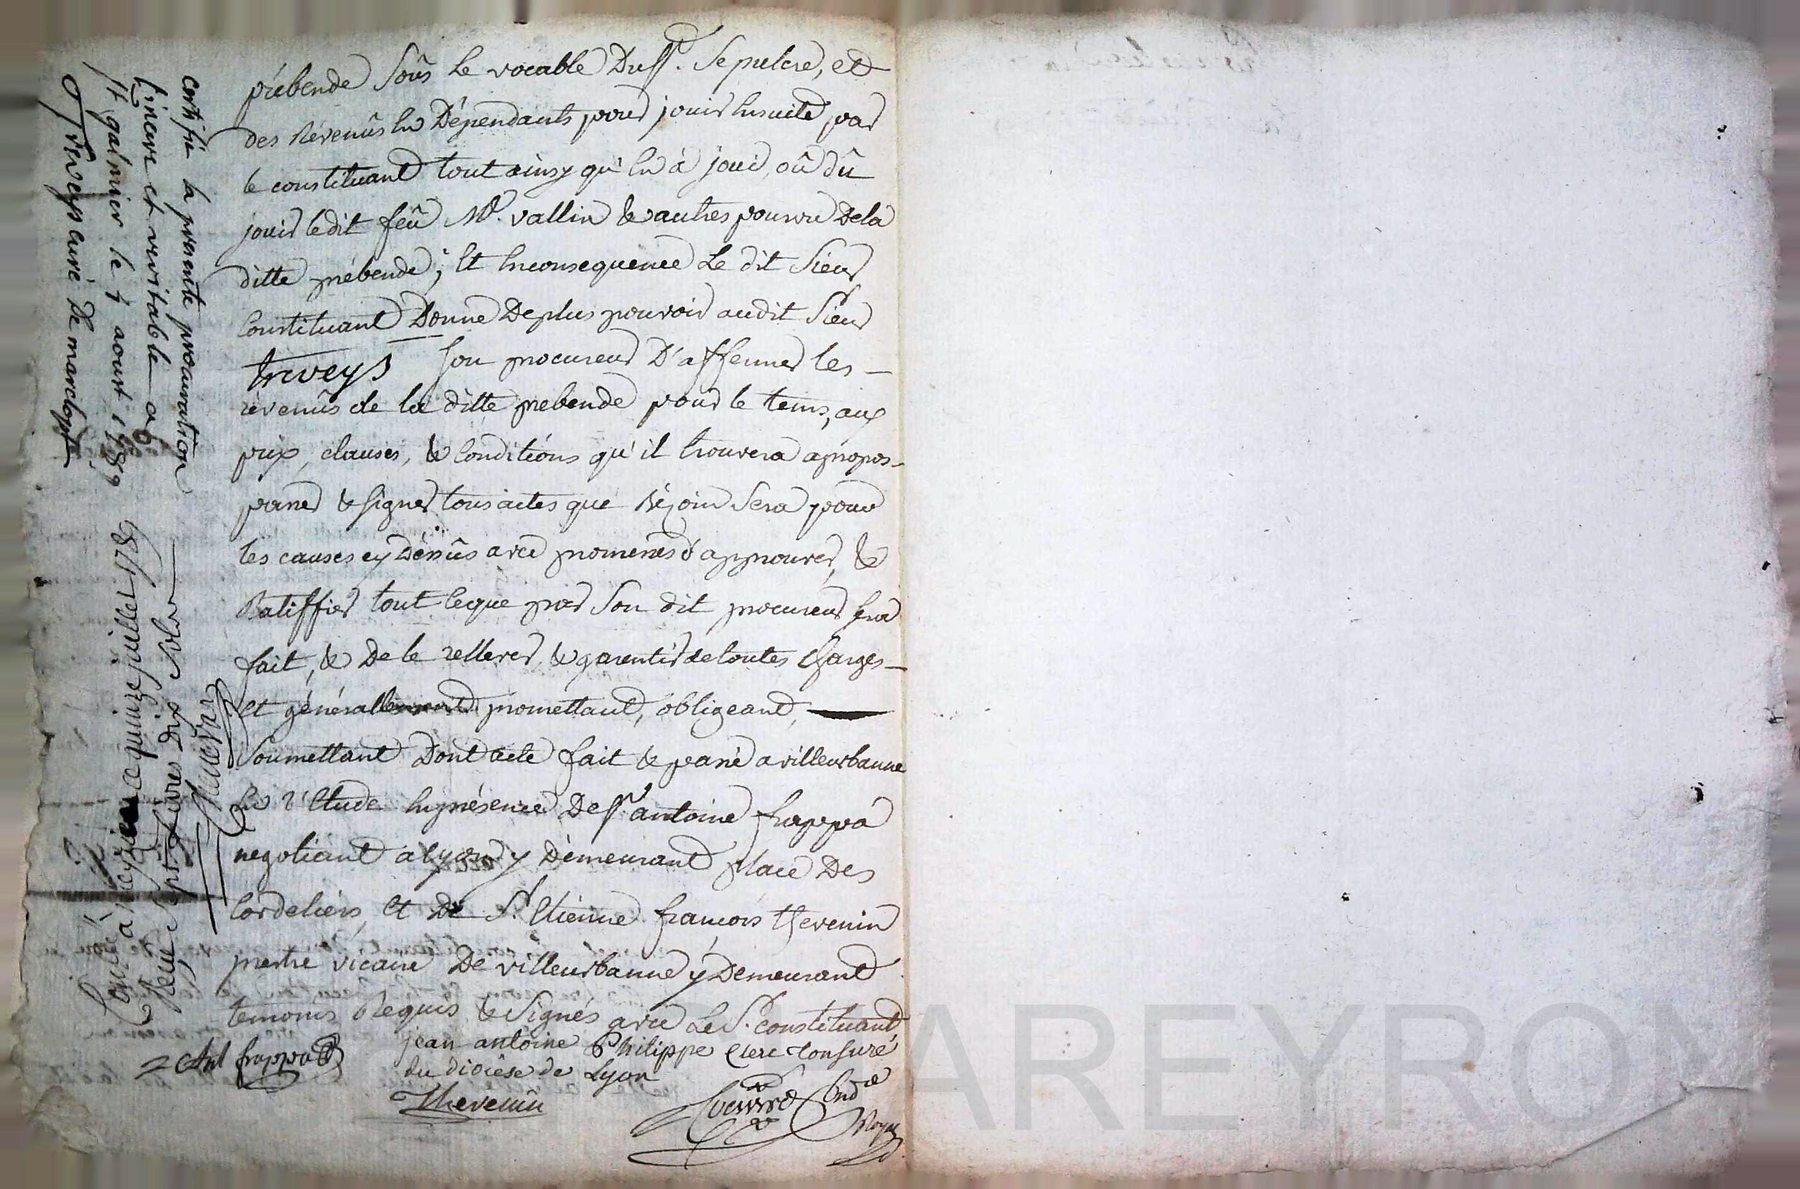 prébende Sous Le vocable Du St. Sepulcre, et
des Révenûs En Dépendants pour jouir Ensuite par
le constituant tout ainsy qu'En à joui, oû dû
jouir ledit feû Mr. vallin & autres pourvu Dela
ditte prébende; Et Enconsequence Le dit Sieur
Constituant Donne Deplus pouvoir audit Sieur
treveys Son procureur D'affermer les
révenûs de la ditte prebende pour le tems, aux
prix, clauses, & Conditions qu'il trouvera apropos
passer & signer tous actes que Bésoin Sera pour
les causes cy Déssûs avec promesses d'approuver, &
Ratiffier tout ceque par Son dit procureur sera
fait, & De le rellever, & garentir de toutes charges
Et générallement promettant, obligeant,
Soumettant Dont acte fait & passé a villeurbanne
En l'Etude En présence De Sr. antoine frappa
negotiant a lyon y Démeurant place Des
Cordeliers, Et de Sr. Etienne françois thevenin
prestre vicaire De villeurbanne y Demeurant
temoins Requis & Signés avec Le Sr. constituant
jean antoine Philippe Clerc tonsuré
du diocèse de Lyon
Ant frappa
Thevenin
Nore
Royal
certifié la presente procuration
sincere et veritable a
St galmier le 7 aoust 1789
Treveys curé de marclopt
Conlé a meyzieu ce quinze juillet 1789
Reçu sept livres dix sols